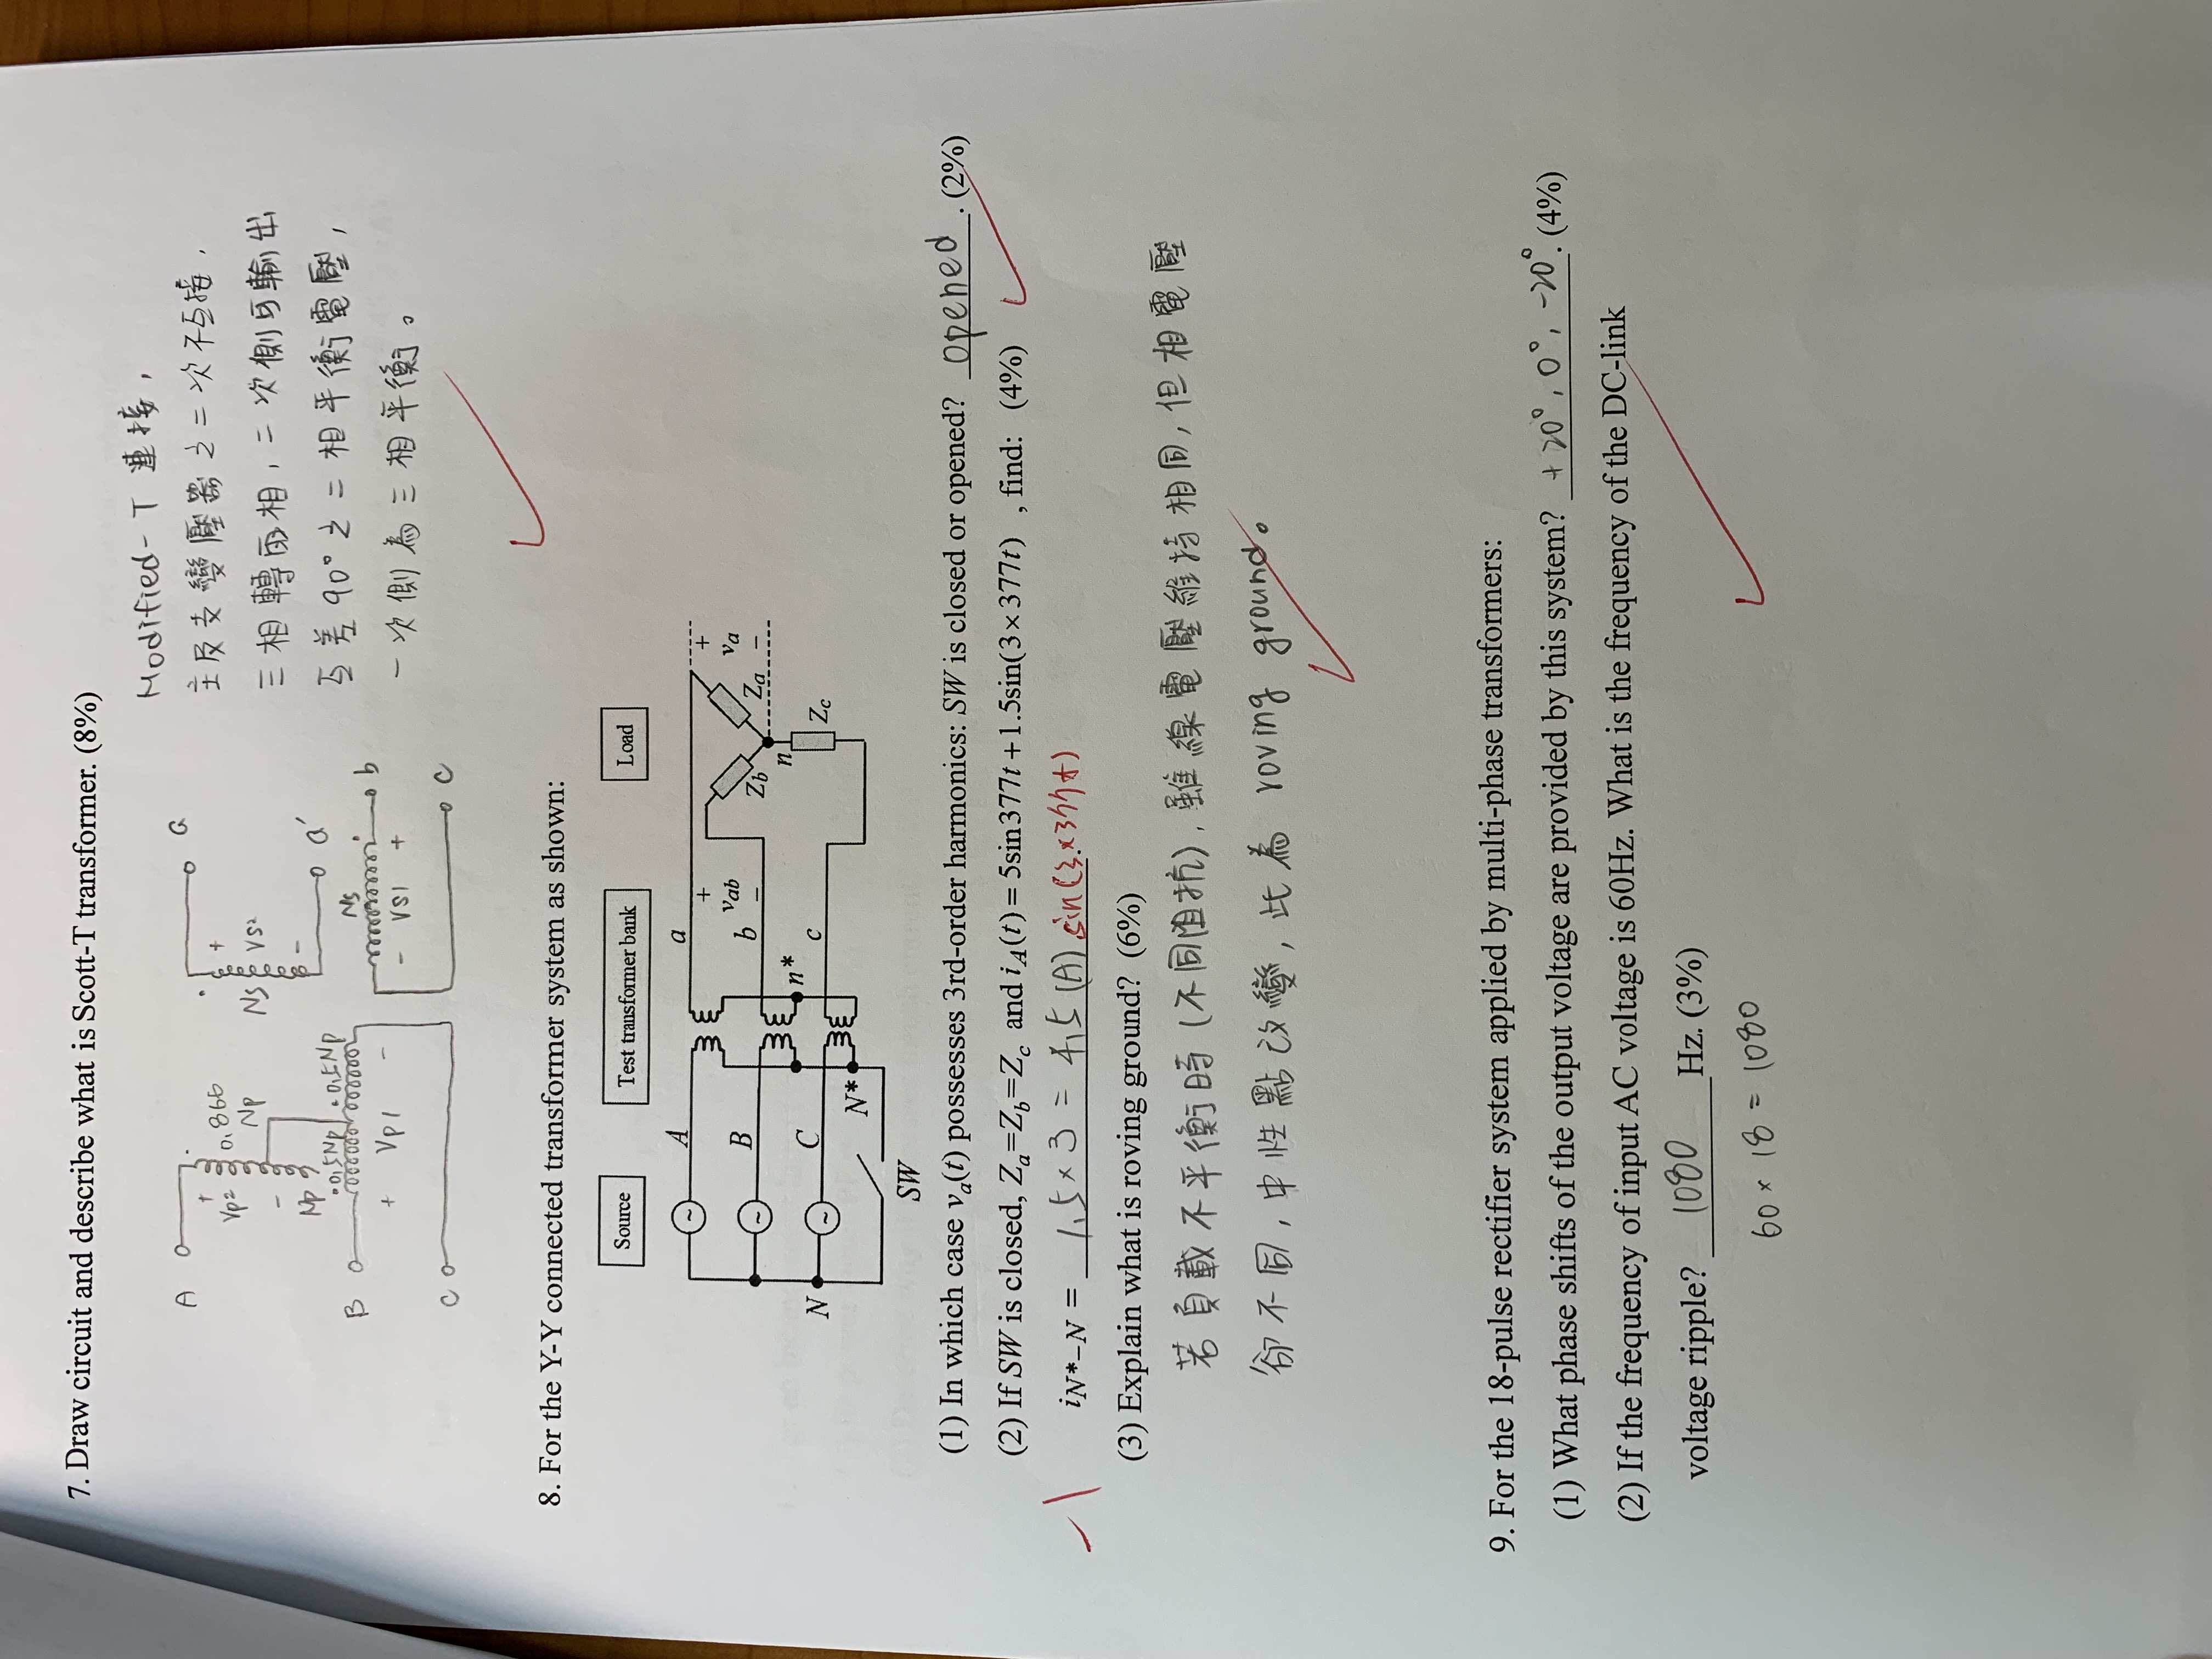 7. Draw circuit and describe what is Scott-T transformer. (8%)
Modified-T 連接，
主及支變壓器之二次不互接，
三相轉兩相，二次側可輸出
互差90°之二相平衡電壓，
一次側為三相平衡。
A
+
Vp2
-
0.866
Np
Np
.0.5Np
.0.5Np
B
+ Vp1 -
C
a
Ns
+
VS2
-
a'
Ns
b
- VS1 +
c
8. For the Y-Y connected transformer system as shown:
Source
Test transformer bank
Load
A
a
+
vab
-
+
va
-
B
b
Zb
Za
n
n*
C
c
Zc
N
N*
SW
(1) In which case va(t) possesses 3rd-order harmonics: SW is closed or opened? opened. (2%)
(2) If SW is closed, Za=Zb=Zc and iA(t) = 5sin377t + 1.5sin(3×377t) , find: (4%)
-1
iN*-N = 1.5 × 3 = 4.5 (A) sin(3×377t).
(3) Explain what is roving ground? (6%)
若負載不平衡時(不同阻抗)，雖線電壓維持相同，但相電壓
卻不同，中性點改變，此為 roving ground。
9. For the 18-pulse rectifier system applied by multi-phase transformers:
(1) What phase shifts of the output voltage are provided by this system? +20°, 0°, -20°. (4%)
(2) If the frequency of input AC voltage is 60Hz. What is the frequency of the DC-link
voltage ripple? 1080 Hz. (3%)
60 × 18 = 1080